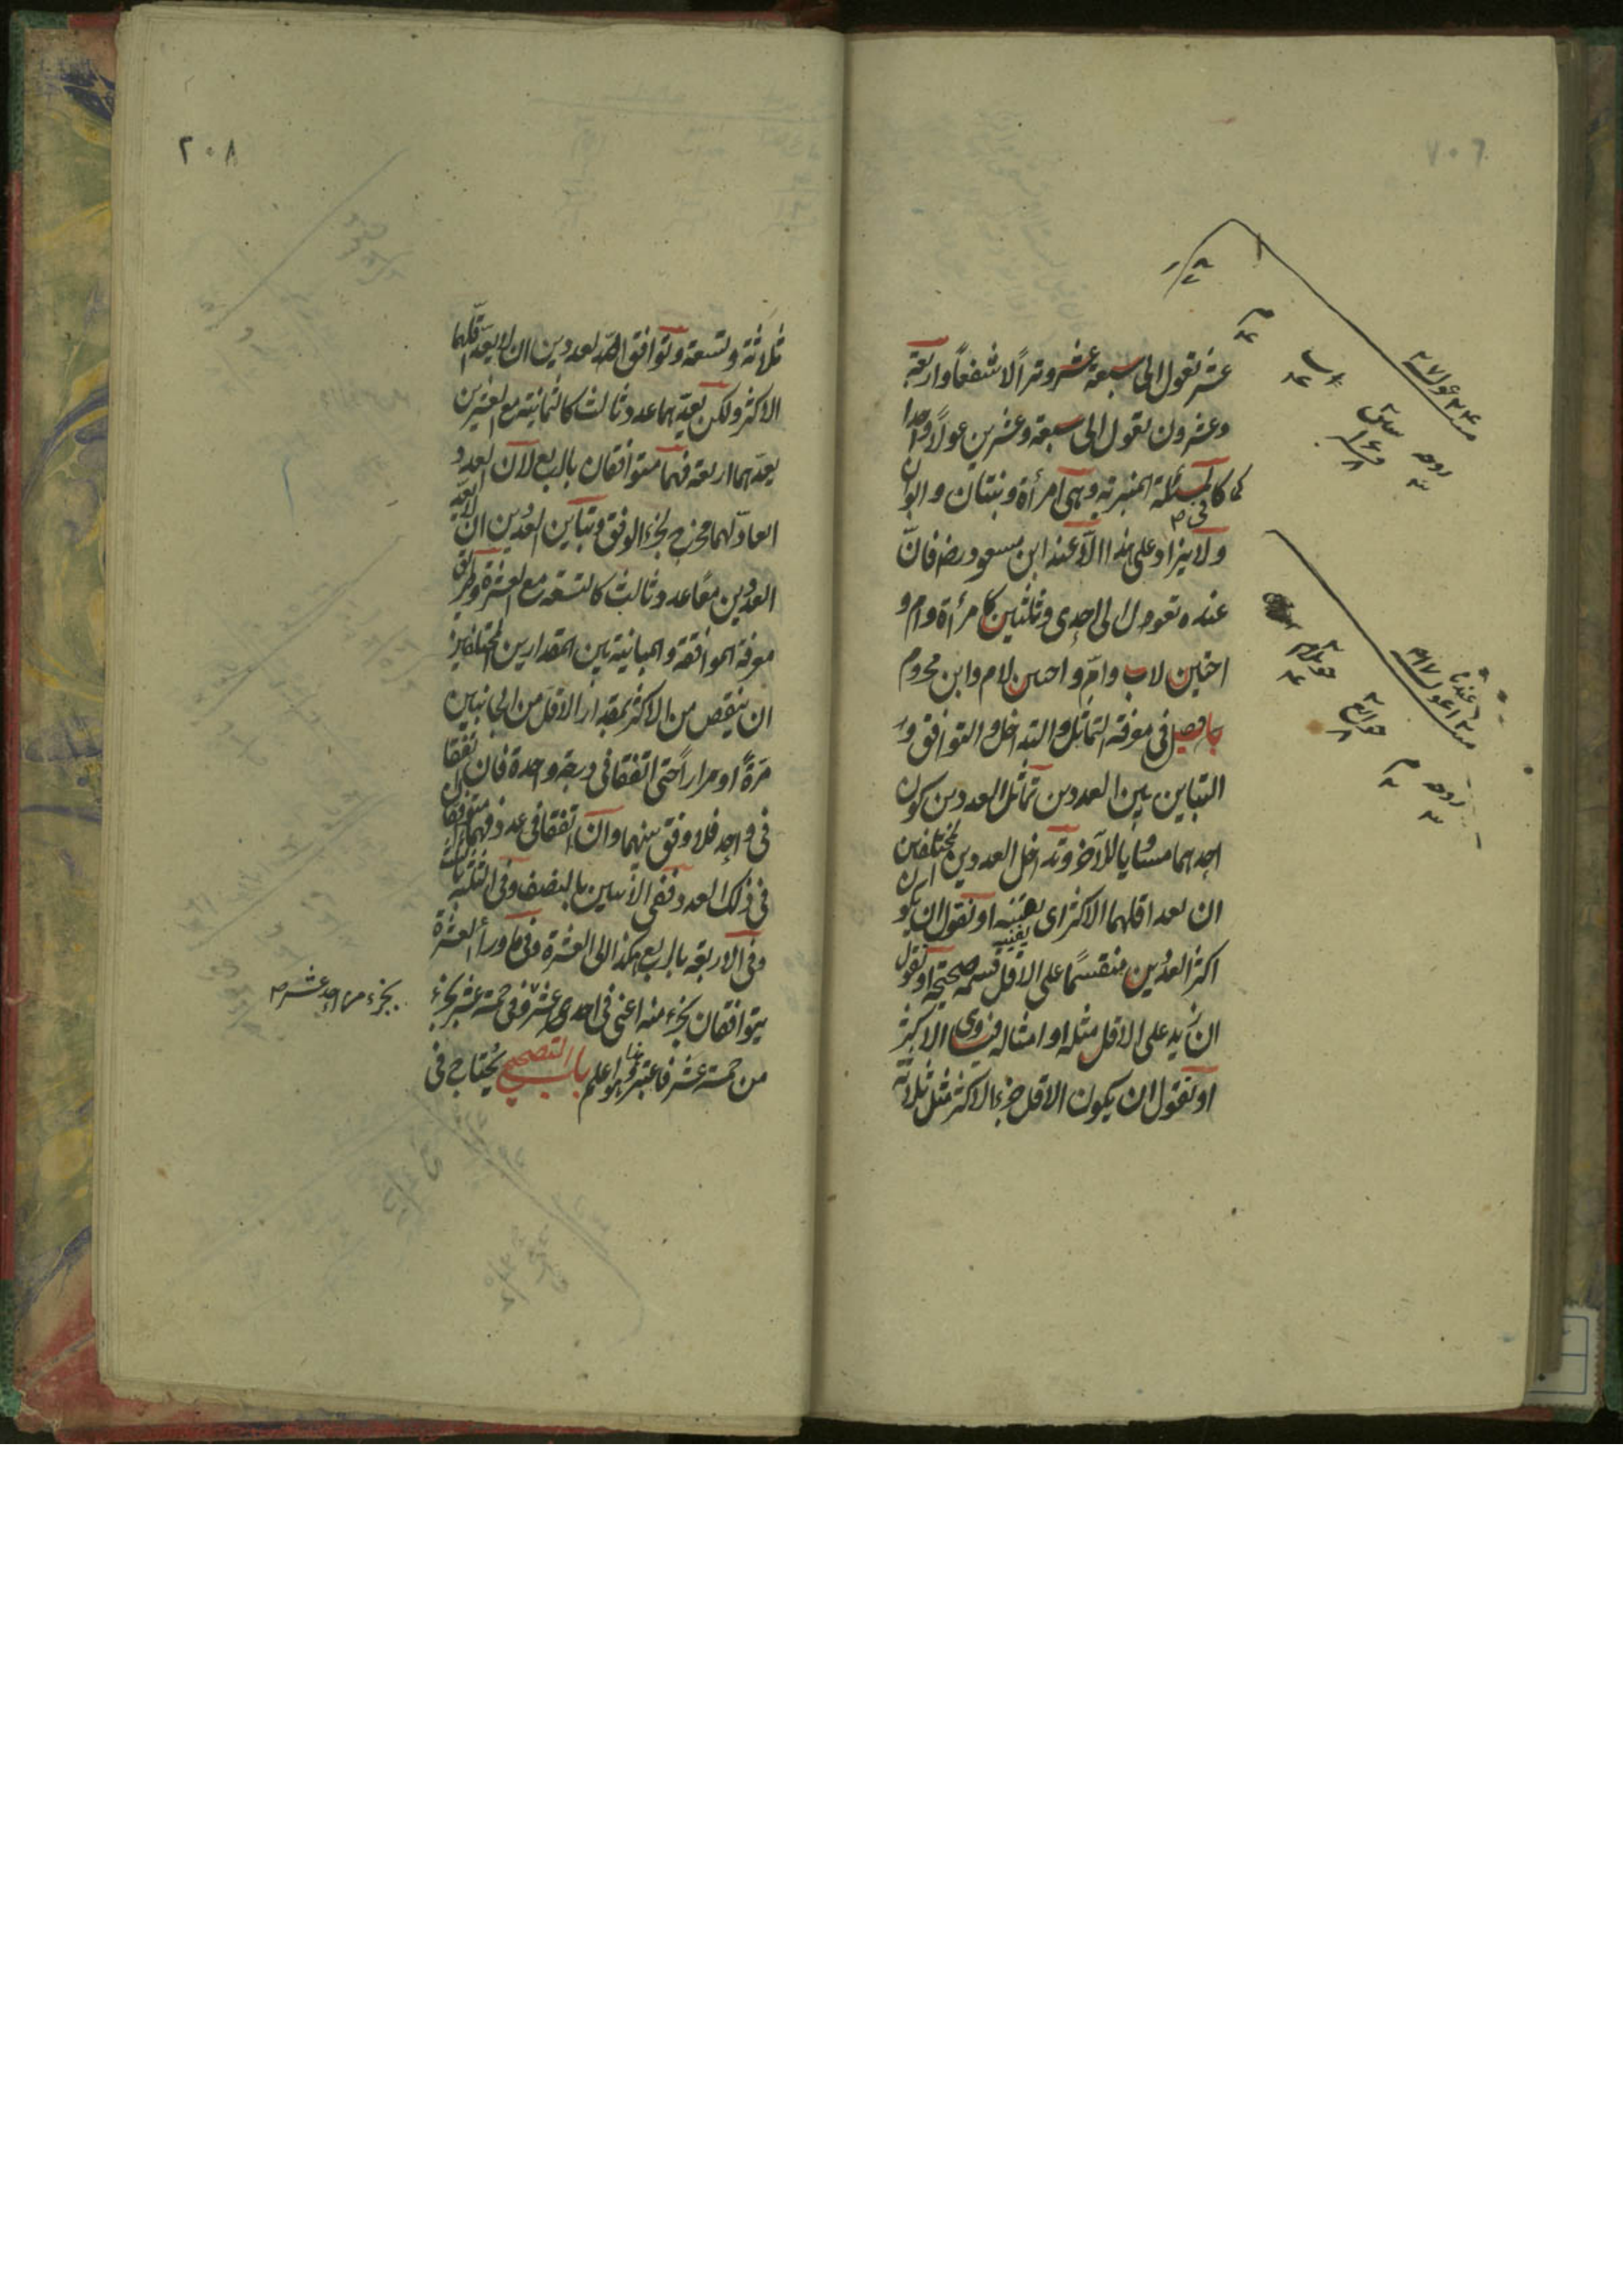 عشر تعول الى سبعة عشر وترا لا شفعاً واربعة
وعشرون تعول الى سبعة وعشرين عولاً واحدا
كما فى المسئلة المنبرية وهى امرأة وبنتان وابوان
ولا يزاد على هذا الا عند ابن مسعود رضـ فان
عنده تعول الى احدى وثلثين كامرأة وام و
اختين لاب وام واختين لام وابن محروم
فصل فى معرفة التماثل والتداخل والتوافق و
التباين بين العددين تماثل العددين كون
احدهما مساويا للآخر وتداخل العددين المختلفين
ان يعد اقلهما الاكثر اى يفنيه او نقول ان يكون
اكثر العددين منقسمًا على الاقل قسمة صحيحة او نقول
ان يزيد على الاقل مثله او امثاله فيساوى الاكثر
او نقول ان يكون الاقل جزء الاكثر مثل ثلاثة
٢٠٨
ثلاثة وتسعة وتوافق العددين ان لا يعد اقلهما
الاكثر ولكن يعدهما عدد ثالث كالثمانية مع العشرين
يعدهما اربعة فهما متوافقان بالربع لان العدد
العاد لهما مخرج لجزء الوفق وتباين العددين ان لا يعد
العددين معًا عدد ثالث كالتسعة مع العشرة وطريق
معرفة الموافقة والمباينة بين المقدارين المختلفين
ان ينقص من الاكثر بمقدار الاقل من الجانبين
مرةً او مراراً حتى اتفقا فى درجة واحدة فان اتفقا
فى واحد فلا وفق بينهما وان اتفقا فى عدد فهما متوافقان
فى ذلك العدد ففى الاثنين بالنصف وفى الثلثة بالثلث
وفى الاربعة بالربع هكذا الى العشرة وفى ما وراء العشرة
يتوافقان بجزء منه اعنى فى احدى عشر وفى خمسة عشر بجزء
بجزء من احد عشر
من خمسة عشر فاعتبر هذا اعلم باب التصحيح يحتاج فى